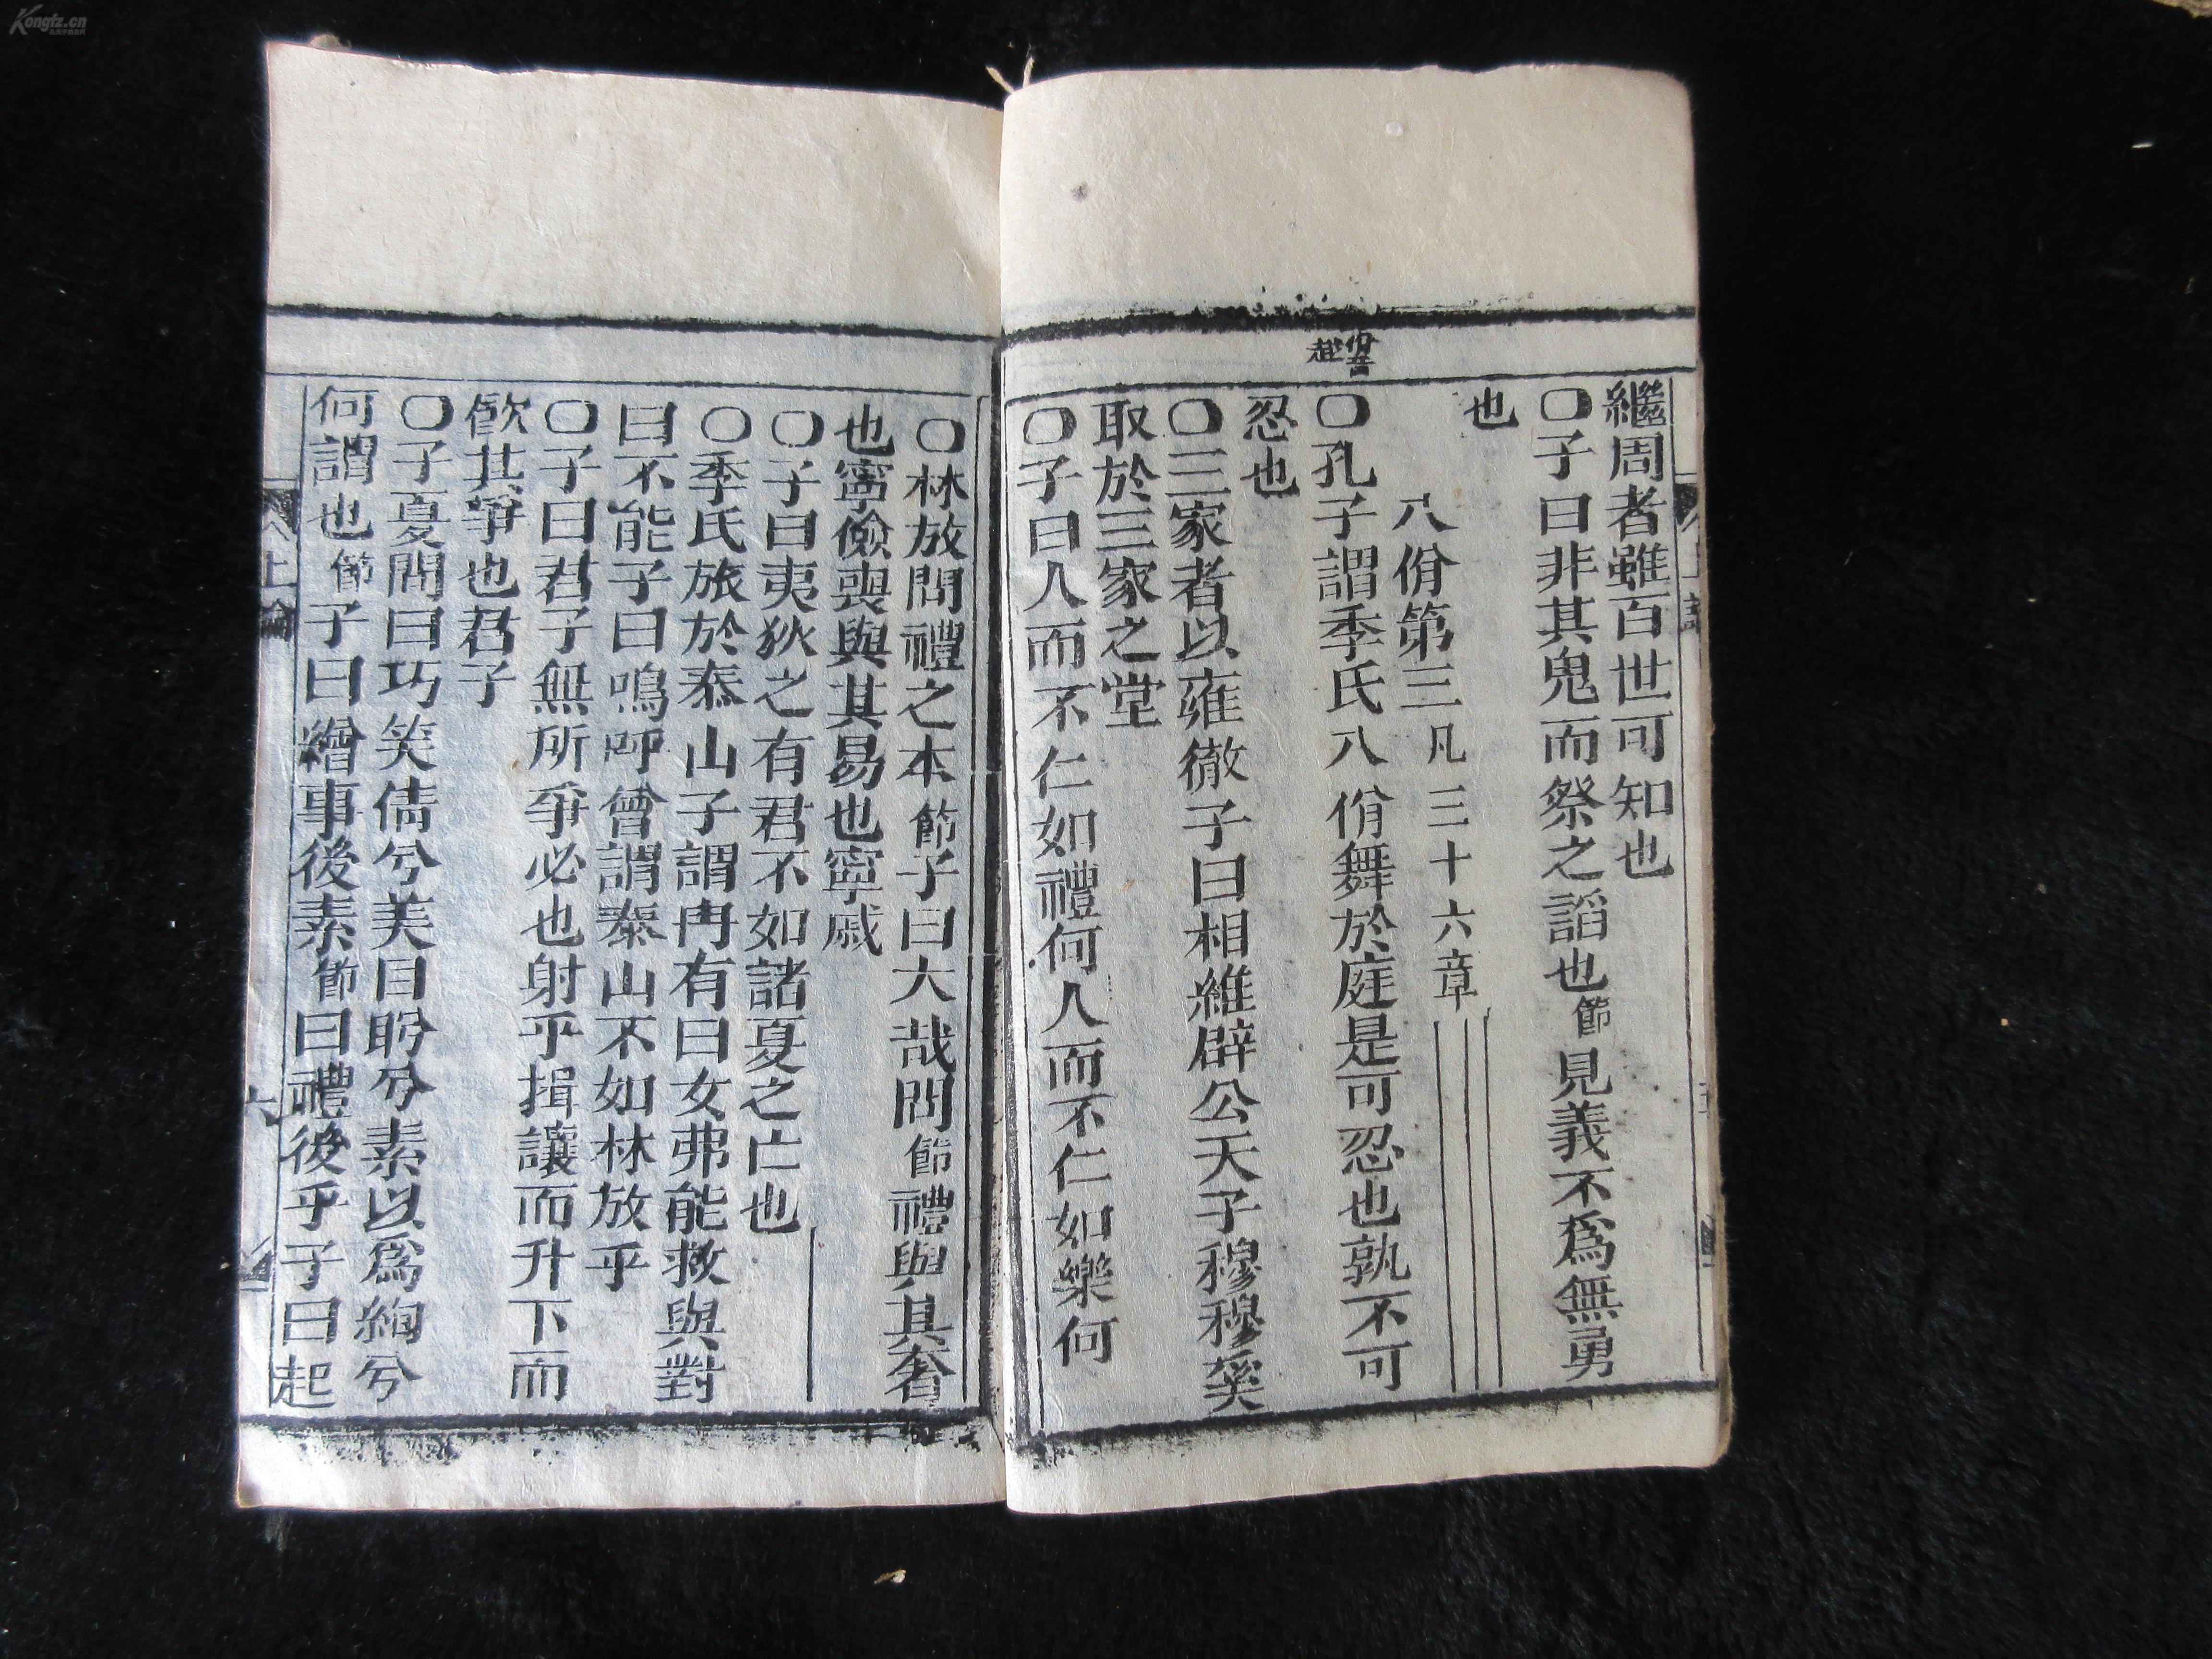 繼周者雖百世可知也
〇子曰非其鬼而祭之諂也節見義不爲無勇
也
八佾第三凡三十六章
〇孔子謂季氏八佾舞於庭是可忍也孰不可
忍也
〇三家者以雍徹子曰相維辟公天子穆穆奚
取於三家之堂
〇子曰人而不仁如禮何人而不仁如樂何
〇林放問禮之本節子曰大哉問節禮與其奢
也寧儉喪與其易也寧戚
〇子曰夷狄之有君不如諸夏之亡也
〇季氏旅於泰山子謂冉有曰女弗能救與對
曰不能子曰嗚呼曾謂泰山不如林放乎
〇子曰君子無所爭必也射乎揖讓而升下而
飲其爭也君子
〇子夏問曰巧笑倩兮美目盼兮素以爲絢兮
何謂也節子曰繪事後素節曰禮後乎子曰起
上論
六
Kongfz.cn